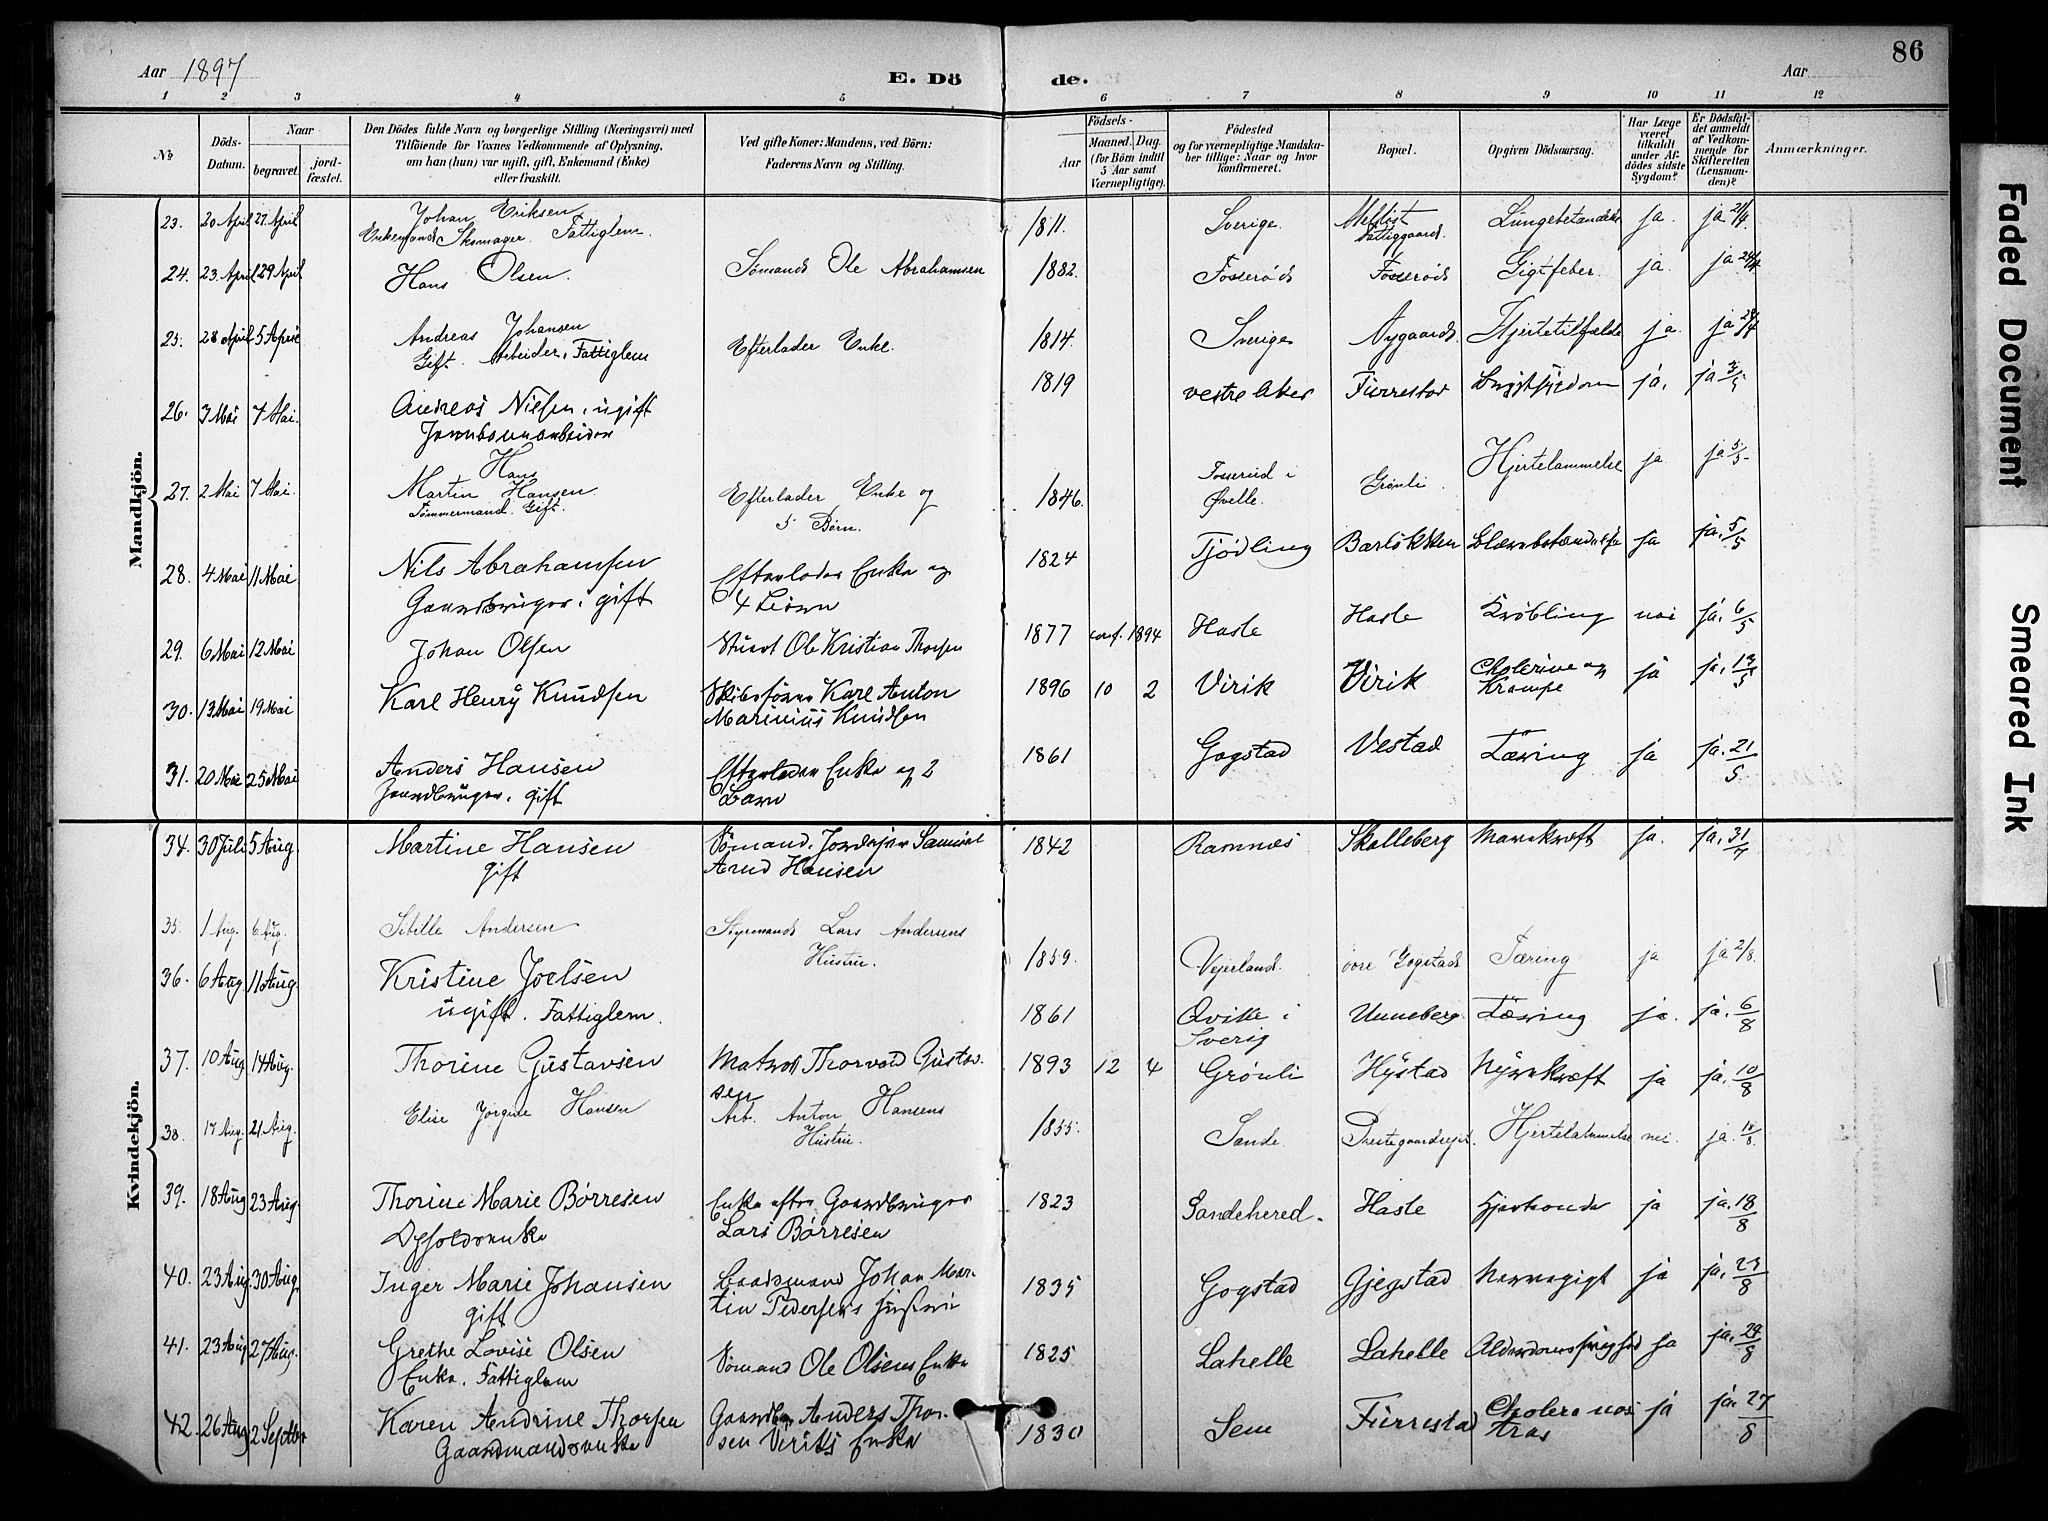 86
Aar 1897 E. Dö de. Aar
1 2 3 4 5 6 7 8 9 10 11 12
№
Döds-Datum.
Naar
begravet.
jord-fæstet.
Den Dödes fulde Navn og borgerlige Stilling (Næringsvei) med
Tilföiende for Voxnes Vedkommende af Oplysning,
om han (hun) var ugift, gift, Enkemand (Enke)
eller fraskilt.
Ved gifte Koner: Mandens, ved Börn:
Faderens Navn og Stilling.
Födsels-
Aar
Maaned. Dag.
(for Börn indtil
5 Aar samt
Værnepligtige).
Födested
og for værnepligtige Mandska-
ber tillige: Naar og hvor
konfirmeret.
Bopæl.
Opgiven Dödsaarsag.
Har Læge
været
tilkaldt
under Af-
dödes sidste
Sygdom?
Er Dödsfal-
det anmeldt
af Vedkom-
mende for
Skifteretten
(Lensman-
den)?
Anmærkninger.
Mandkjön.
23. 20 April 27 April Johan Eriksen 1811. Sverige Lungebetændelse ja. ja 21/4.
Enkemand Skomager. Fattiglem. Fattiggaard.
24. 23 April 29 April Hans Olsen. Sømand Ole Abrahamsen 1882. Fosserød Fosserød Gigtfeber. ja. ja 24/4
25. 28 April 5 April Andreas Johansen Efterlader Enke. 1814. Sverige Nygaard. Hjertetilfælde ja. ja 29/4
Gift. Arbeider, Fattiglem
26. 3 Mai 7 Mai. Andreas Nilsen, ugift 1819 vestre Aker Furrestad Brystsygdom ja. ja 3/5
Jernbanearbeider
27. 2 Mai 7 Mai. Hans Martin Hansen. Efterlader Enke og 1846. Fosserud i Grønli Hjertelammelse ja ja 5/5.
Tømmermand. Gift. 5 Børn. Qvelle.
28. 4 Mai 11 Mai Nils Abrahamsen Efterlader Enke og 1824 Tjødling Blærebetændelse ja ja. 5/5
Gaardbruger, gift 4 Børn
29. 6 Mai 12 Mai Johan Olsen Stuert Ole Kristian Thorsen 1877 conf. 1894 Hasle Hasle Krøbling nei ja. 6/5
30. 13 Mai 19 Mai Karl Henry Knudsen Skibsfører Karl Anton 1896 10 2 Virik Virik Cholerine og ja ja. 13/5
Marinius Knudsen Krampe
31. 20 Mai 25 Mai Anders Hansen Efterlader Enke og 2 1861 Gogstad Vestad Tæring ja ja. 21/5
Gaardbruger, gift Børn
Kvindekjön.
34. 30 Juli 5 Aug Martine Hansen Sømand, Jordejer Samuel 1842 Ramnæs Skolleberg Mavekræft ja. ja. 31/7
gift Arnd Hansen
35. 1 Aug. 6 Aug. Sibille Andersen Styrmand Lars Andersens 1859. Vejerland. øvre Gogstad Tæring ja ja 2/8.
Hustru.
36. 6 Aug. 11 Aug. Kristine Joelsen 1861 Qville i Unneberg Tæring ja. ja. 6/8
ugift. Fattiglem. Sverig
37. 10 Aug 14 Aug. Thorine Gustavsen Matros Thorvald Gustav- 1893 12 4 Grønli Hystad Nyrekræft ja ja. 10/8
sen
38. 17 Aug. 21 Aug. Elise Jørgine Hansen Arb. Anton Hansens 1855. Sande. Hjertelammelse nei. ja.
Hustru.
39. 18 Aug 23 Aug. Thorine Marie Børresen Enke efter Gaardbruger 1823 Sandehered. Hasle ja ja. 18/8
Lars Børresen
40. 23 Aug. 30 Aug. Inger Marie Johansen Baadsmand Johan Mar- 1835 Gogstad Gjegstad Nervegigt ja ja. 27/8
gift tin Pedersens hustru
41. 23 Aug 27 Aug. Grethe Lovise Olsen Sømand Ole Olsens Enke 1825 Lahelle Lahelle Alderdomssvaghed ja ja. 29/8
Enke. Fattiglem
42. 26 Aug 2 Septbr Karen Andrine Thorsen Gaardbr. Anders Thor- 1830 Sem Furrestad Cholera nos- ja ja. 27/8
Gaardmandsenke sen Viriks Enke tras
Faded Document
Smeared Ink